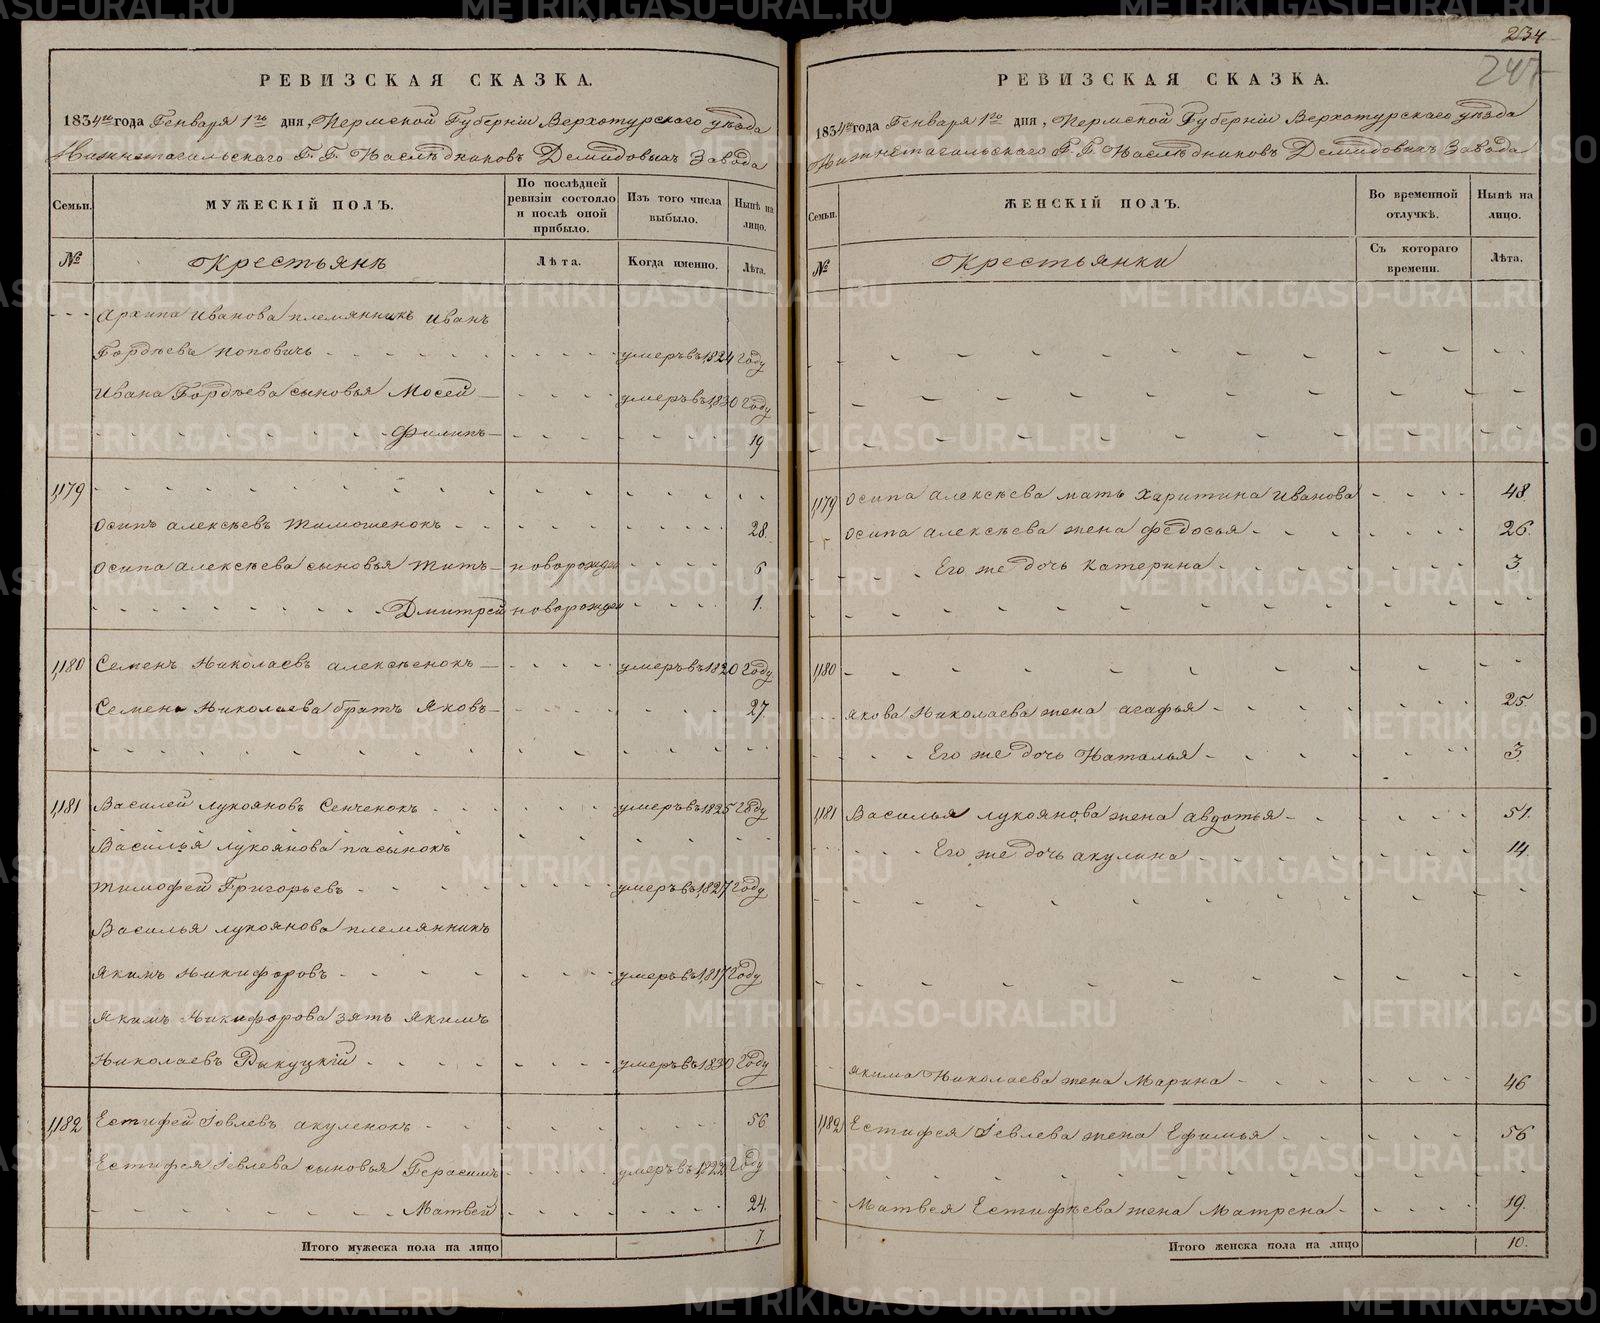 РЕВИЗСКАЯ СКАЗКА.
1834го года Генваря 1го дня, Пермской Губернiи Верхотурскаго уѣзда
Нижнетагильскаго Г. Г. Наслѣдниковъ Демидовыхъ Завода
Семьи.
МУЖЕСКIЙ ПОЛЪ.
По послѣдней ревизiи состояло и послѣ оной прибыло.
Изъ того числа выбыло.
Нынѣ на лицо.
№
Крестьянѣ
Лѣта.
Когда именно.
Лѣта.
Архипа Иванова племянникъ Иванъ
Гордѣевъ Поповичь умеръ въ 1824 Году
Ивана Гордѣева сыновья Мосей умеръ въ 1830 Году
Филипъ 19
1179
Осипъ Алексѣевъ Тимошенокъ 28.
Осипа Алексѣева сыновья Титъ новорожден 6
Дмитрей новорожден 1.
1180 Семенъ Николаевъ Алексѣенокъ умеръ въ 1820 Году
Семена Николаева братъ Яковъ 27.
1181 Василей Лукояновъ Сенченокъ умеръ въ 1825 Году
Василья Лукоянова пасынокъ
Тимофей Григорьевъ умеръ въ 1827 Году
Василья Лукоянова племянникъ
Якимъ Никифоровъ умеръ въ 1817 Году
Якимъ Никифорова зять Якимъ
Николаевъ умеръ въ 1830 Году
1182 Естифей Iовлевъ Акуленокъ 56
Естифея Iевлева сыновья Герасимъ умеръ въ 1822 Году
Матвей 24.
Итого мужеска пола на лицо 7
234
247
РЕВИЗСКАЯ СКАЗКА.
1834го года Генваря 1го дня, Пермской Губернiи Верхотурскаго уѣзда
Нижнетагильскаго Г. Г. Наслѣдниковъ Демидовыхъ Завода
Семьи.
ЖЕНСКIЙ ПОЛЪ.
Во временной отлучкѣ.
Нынѣ на лицо.
№
Крестьянки
Съ котораго времени.
Лѣта.
1179 Осипа Алексѣева мать Харитина Иванова 48
Осипа Алексѣева жена Федосья 26.
Его же дочь Катерина 3.
1180
Якова Николаева жена Агафья 25.
Его же дочь Наталья 3.
1181 Василья Лукоянова жена Авдотья 51.
Его же дочь Акулина 14.
Якима Николаева жена Марина 46
1182 Естифея Iевлева жена Ефимья 56
Матвея Естифѣева жена Матрена 19.
Итого женска пола на лицо 10.
METRIKI.GASO-URAL.RU